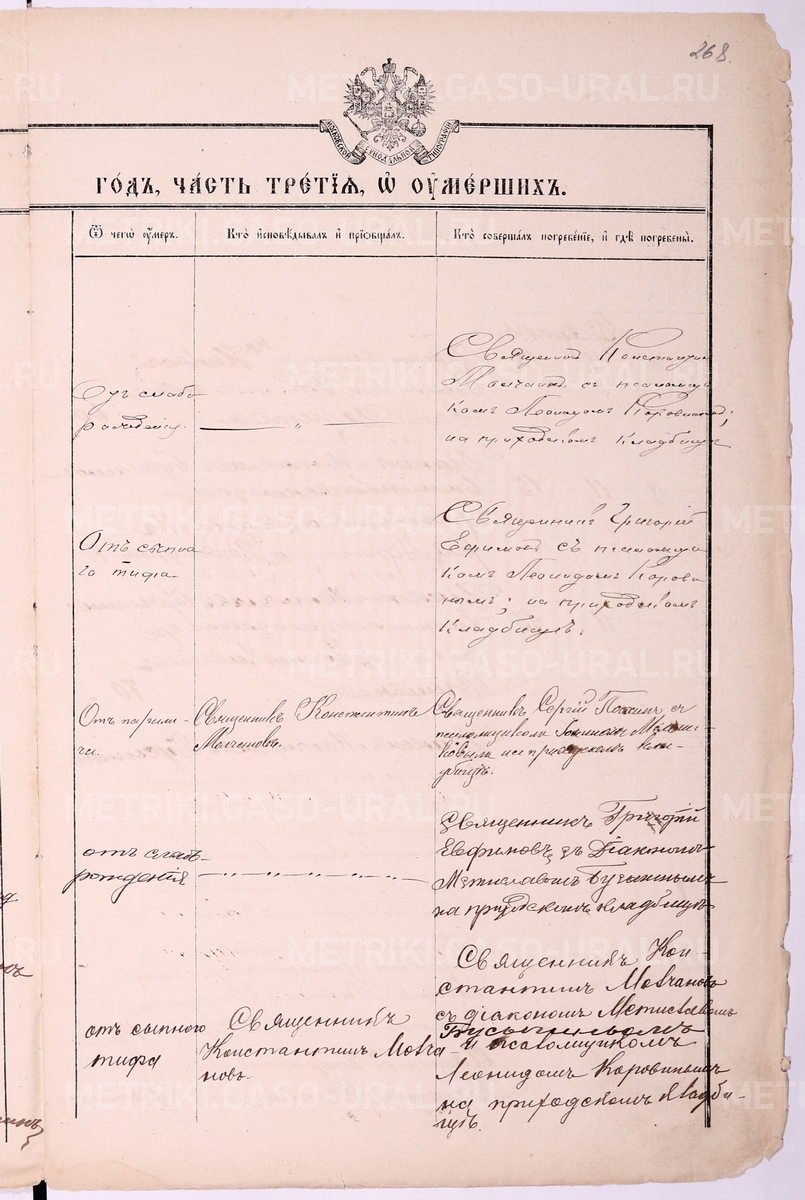 268.
МОСКОВСКОЙ СѴНОДАЛЬНОЙ ТИПОГРАФІИ
ГО́ДЪ, ЧА́СТЬ ТРЕ́ТІѦ, Ѡ҆ ОУ҆МЕ́РШИХЪ.
Ѿ чегѡ̀ оу҆́меръ.
Кто̀ и҆сповѣ́дывалъ и҆ прїѡбща́лъ.
Кто̀ соверша́лъ погребе́нїе, и҆ гдѣ̀ погребены̀.
Отъ слабо
рожденія.
— „ —
Священник Константин
Молчанов с псаломщи
комъ Леонидом Коровиным;
на приходском кладбищѣ
Отъ сыпна
го тифа
Священникъ Григорій
Ефимовъ съ псаломщи
комъ Леонидомъ Корови
нымъ; на приходскомъ
кладбищѣ.
Отъ парали-
ча.
Священникъ Константинъ
Молчановъ.
Священникъ Сергій съ
псаломщикомъ
на приходскомъ кла-
дбищѣ.
отъ слаб-
рожденія
Священникъ Григорій
Евфимовъ съ Діакономъ
Мстиславомъ Бусыгинымъ
на приходскомъ кладбищѣ
отъ сыпного
тифа
Священникъ
Константинъ Молча-
новъ.
Священникъ Кон
стантинъ Молчановъ
съ діакономъ Мстиславомъ
Бусыгинымъ
и псаломщикомъ
Леонидомъ Коровинымъ
на приходскомъ кладби-
щѣ.
METRIKI.GASO-URAL.RU